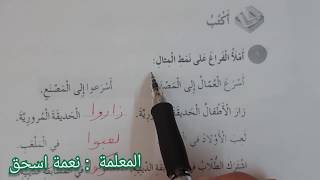 أَكْتُبُ
أَمْلَأُ الْفَراغَ عَلى نَمَطِ الْمِثالِ:
أَسْرَعَ الْعُمّالُ إِلى الْمَصْنَعِ. أَسْرَعوا إِلى الْمَصْنَعِ.
زارَ الْأَطْفالُ الْحَديقَةَ الْمُرورِيَّةَ. زاروا الْحَديقَةَ الْمُرورِيَّةَ.
لَعِبَ الْأَوْلادُ في لعبوا في الْمَلْعَبِ.
اشْتَرَكَ الطُّلّابُ
المعلمة : نعمة اسحق